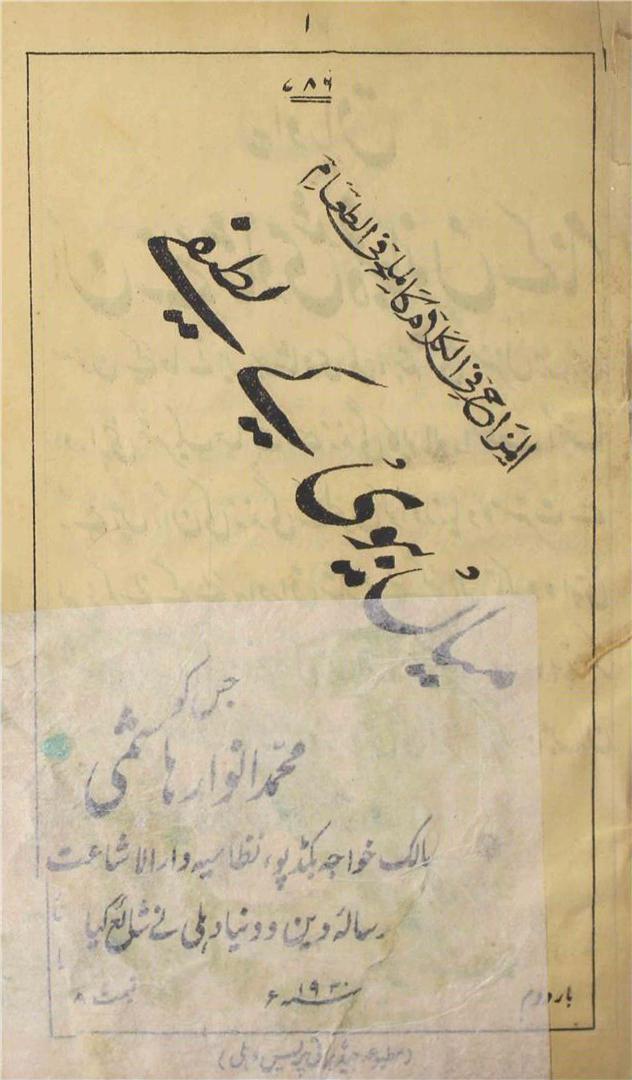 ۱
۷۸۶
المزاح فی الکلام کالملح فی الطعام
میاں بیوی کے لطیفے
جس کو
محمد انوار ہاشمی
مالک خواجہ بکڈپو، نظامیہ دارالاشاعت
رسالہ دین و دنیا دہلی نے شائع کیا
بار دوم
سنہ ۱۹۳۰ء
قیمت ۸
(مطبوعہ پریس دہلی)